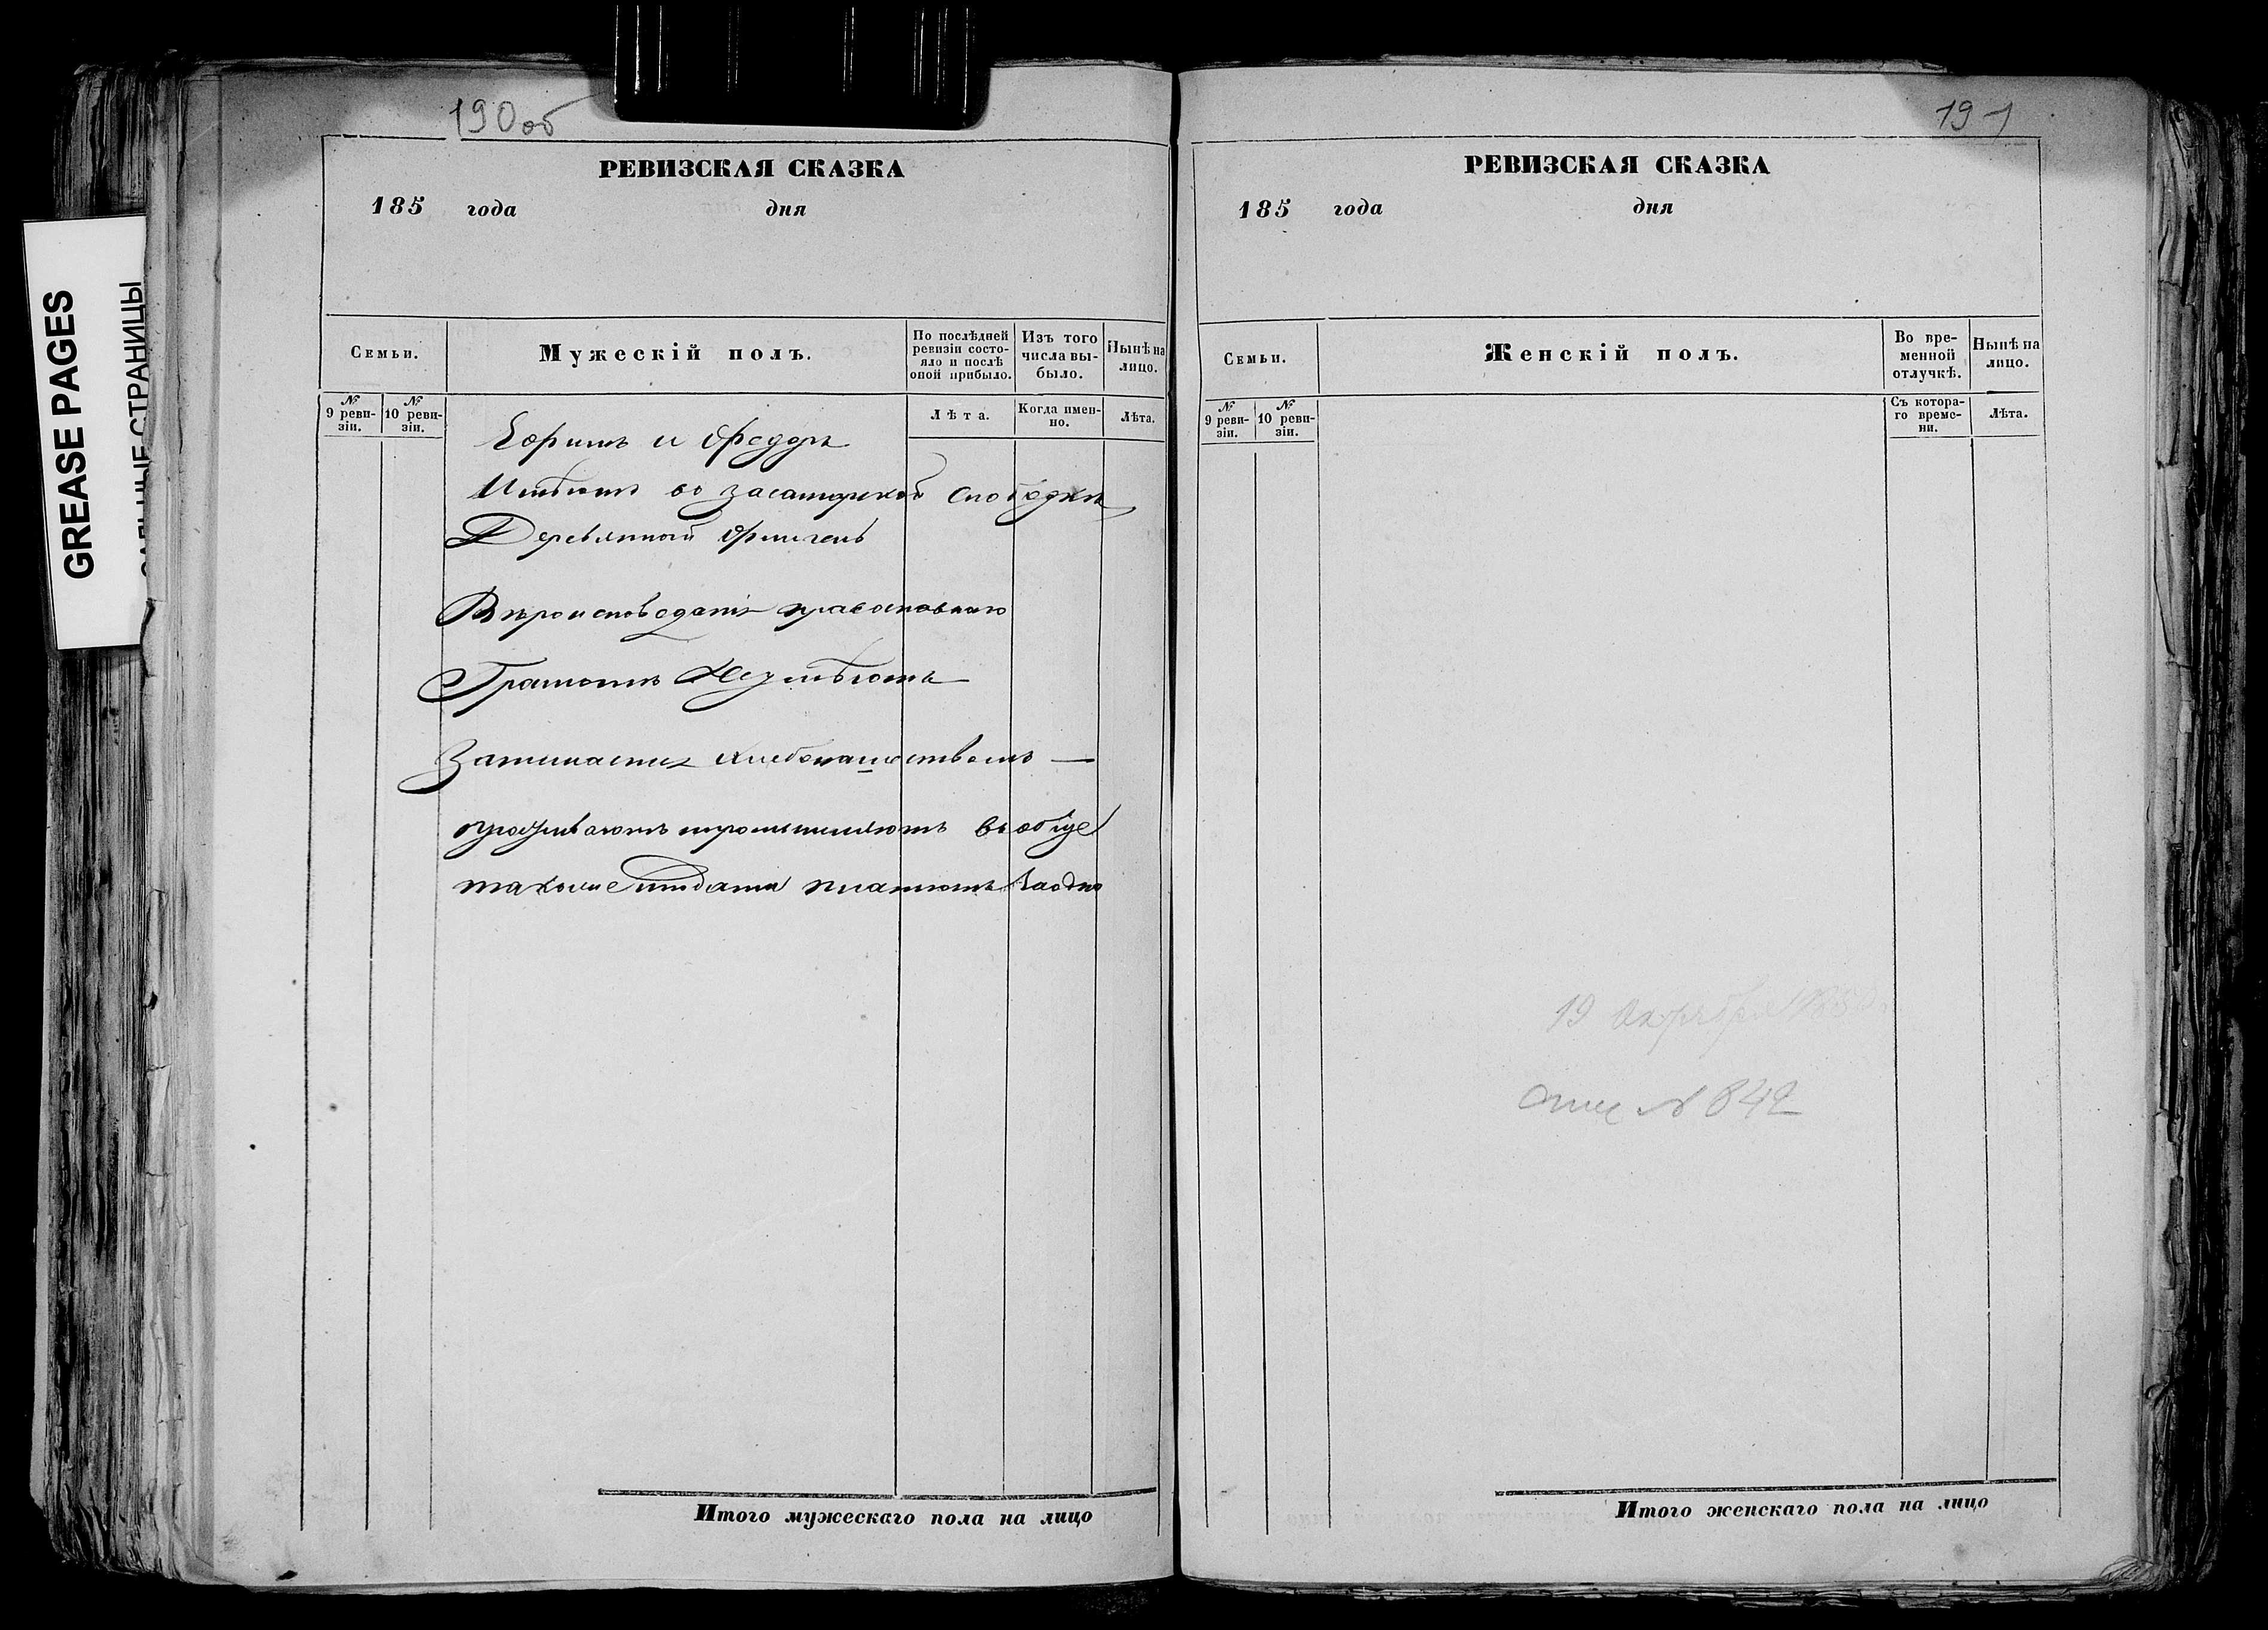 GREASE PAGES
САЛЬНЫЕ СТРАНИЦЫ
190об
РЕВИЗСКАЯ СКАЗКА
185 года дня
Семьи.
Мужескій полъ.
По послѣдней ревизіи состояло и послѣ оной прибыло.
Изъ того числа выбыло.
Нынѣ на лицо.
№ 9 ревизіи.
№ 10 ревизіи.
Лѣта.
Когда именно.
Лѣта.
Ефимъ и Федоръ
Имѣютъ во слободкѣ
Деревянной флигель
Вѣроисповеданія православнаго
Грамотѣ Неумѣютъ
Занимаются хлебопашествомъ —
вообще
платютъ Заодно
Итого мужескаго пола на лицо
191
РЕВИЗСКАЯ СКАЗКА
185 года дня
Семьи.
Женскій полъ.
Во временной отлучкѣ.
Нынѣ на лицо.
№ 9 ревизіи.
№ 10 ревизіи.
Съ котораго времени.
Лѣта.
19 Октября
№ 842
Итого женскаго пола на лицо